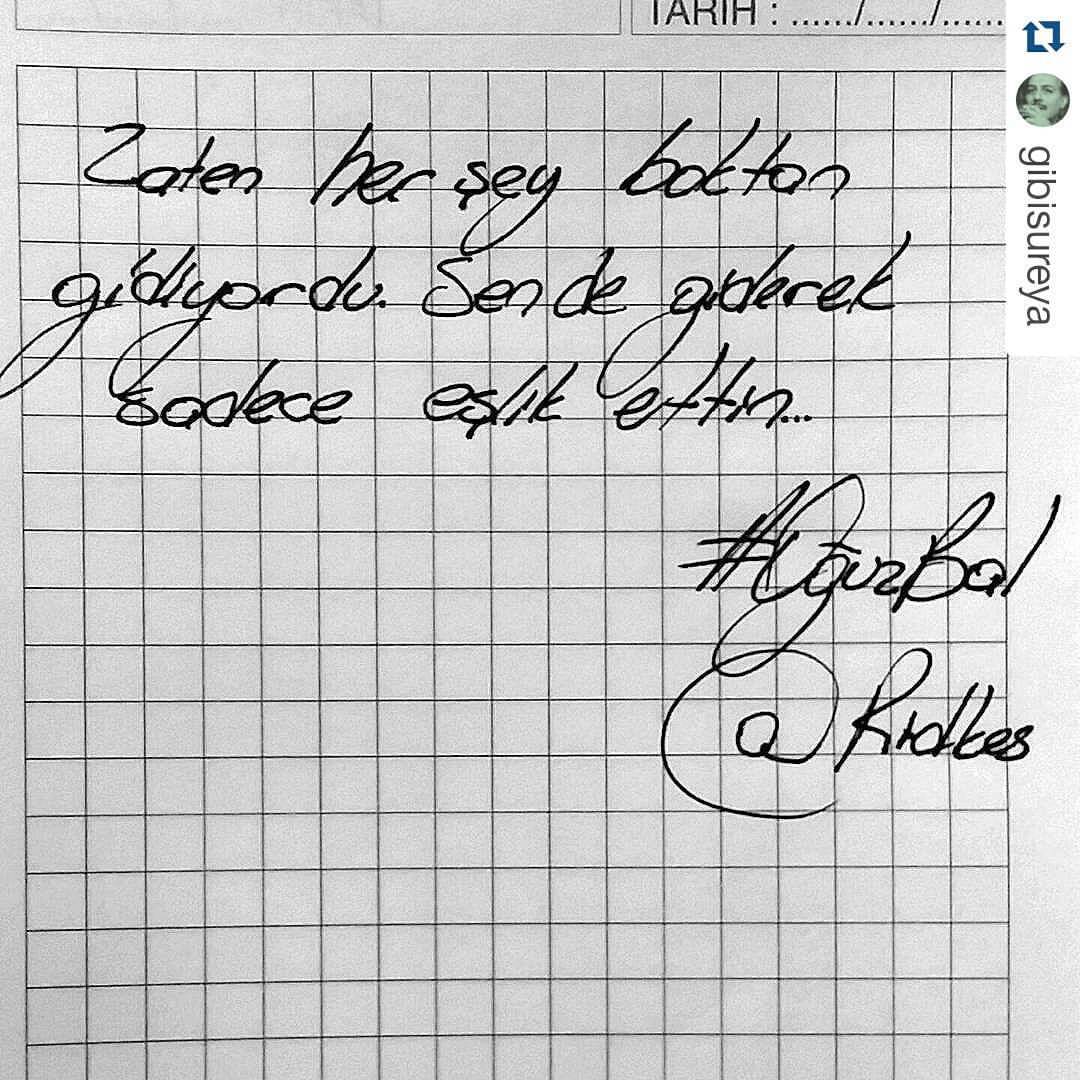 TARİH : ....../....../......
gibisureya
Zaten her şey boktan
gidiyordu. Sen de giderek
sadece eşlik ettin...
#OğuzBal